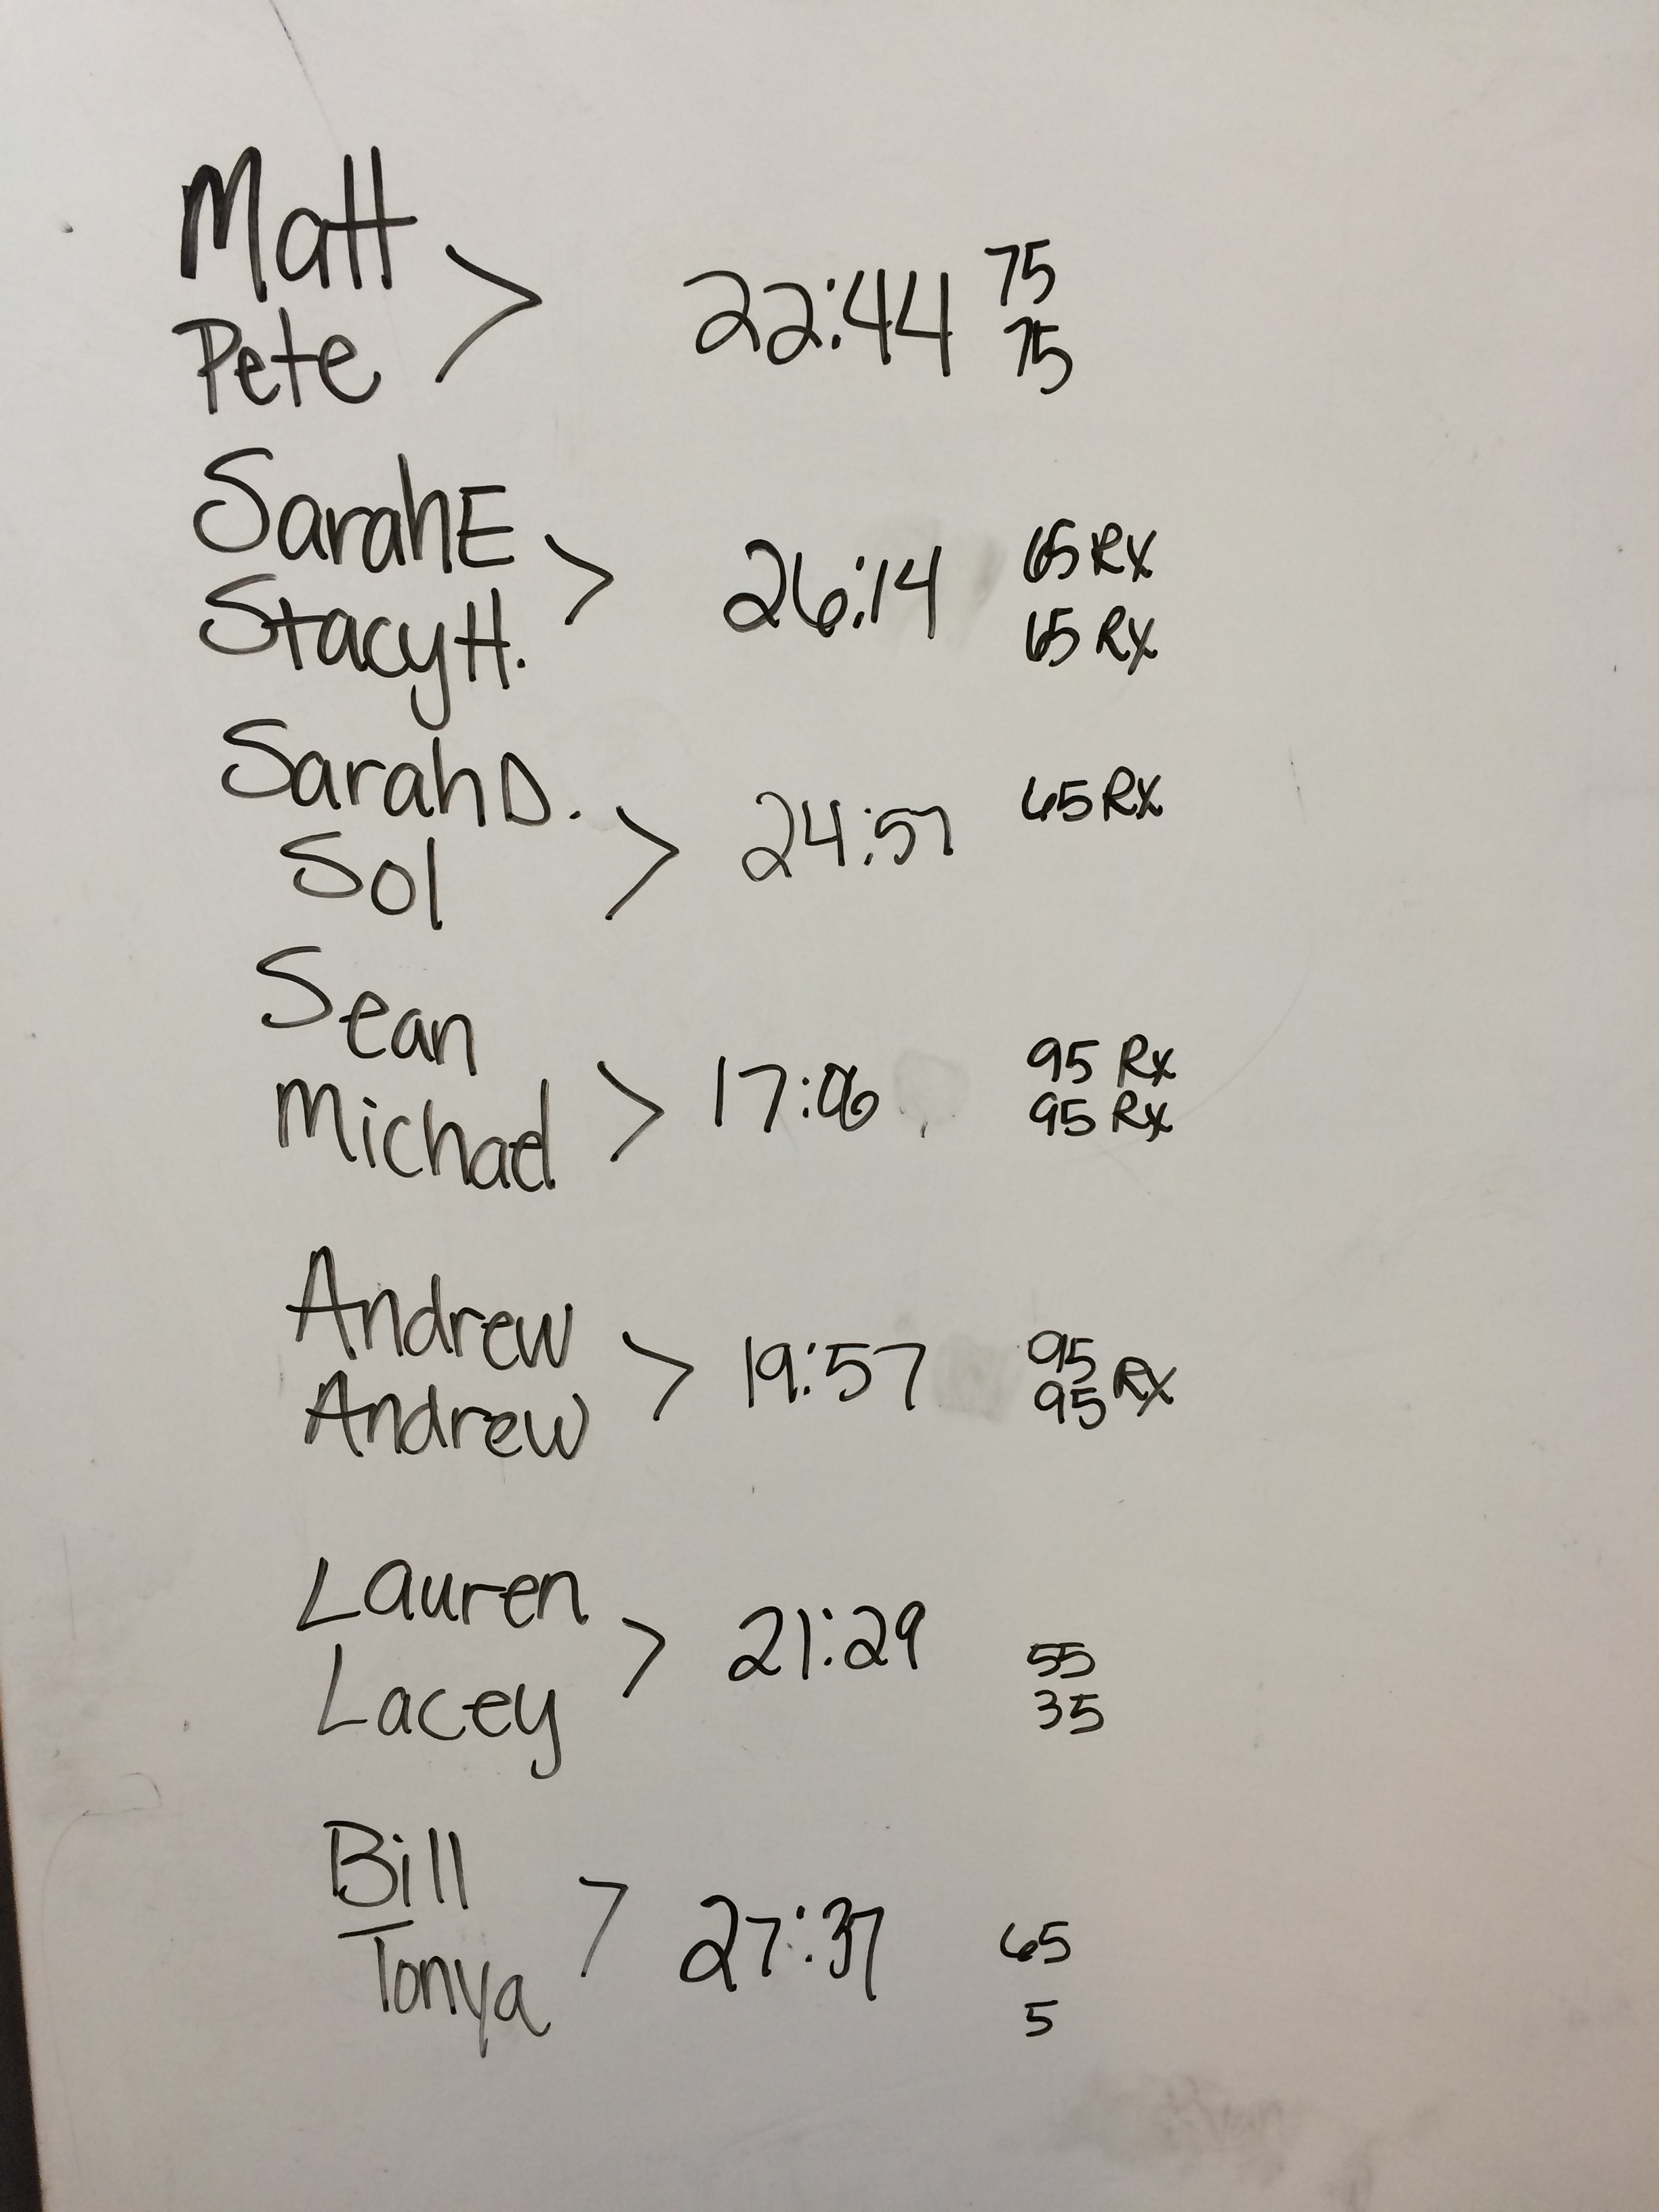 Matt
Pete > 22:44 75
75
Sarah E
Stacy H. > 26:14 65 Rx
65 Rx
Sarah D.
Sol > 24:57 65 Rx
Sean
Michael > 17:06 95 Rx
95 Rx
Andrew
Andrew > 19:57 95
95 Rx
Lauren
Lacey > 21:29 55
35
Bill
Tonya > 27:37 65
5